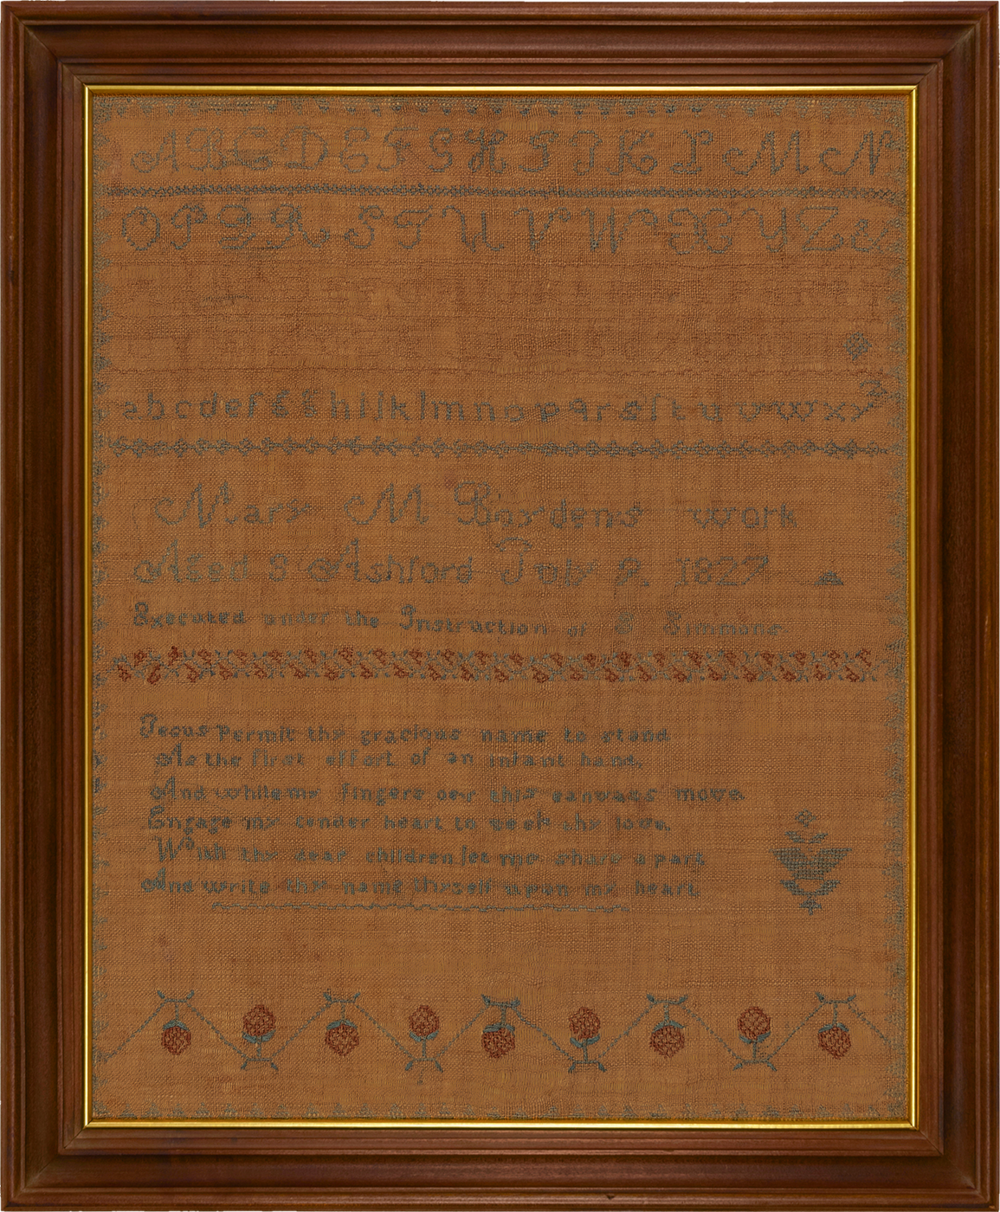 A B C D E F G H I J K L M N
O P Q R S T U V W X Y Z &
a b c d e f g g h i j k l m n o p q r s ſ t u v w x y z
Mary M Bosdens work
Aged 9 Ashford July 9 1827
Executed under the Instruction of S Simmons
Jesus permit thy gracious name to stand
As the first effort of an infant hand,
And while my fingers oer this canvass move
Engage my tender heart to seek thy love,
With thy dear children let me share a part
And write thy name thyself upon my heart.